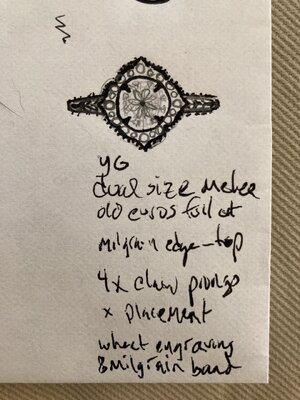 YG
dual size melee
old euros full cut
milgrain edge - top
4x claw prongs
x placement
wheat engraving
& milgrain band